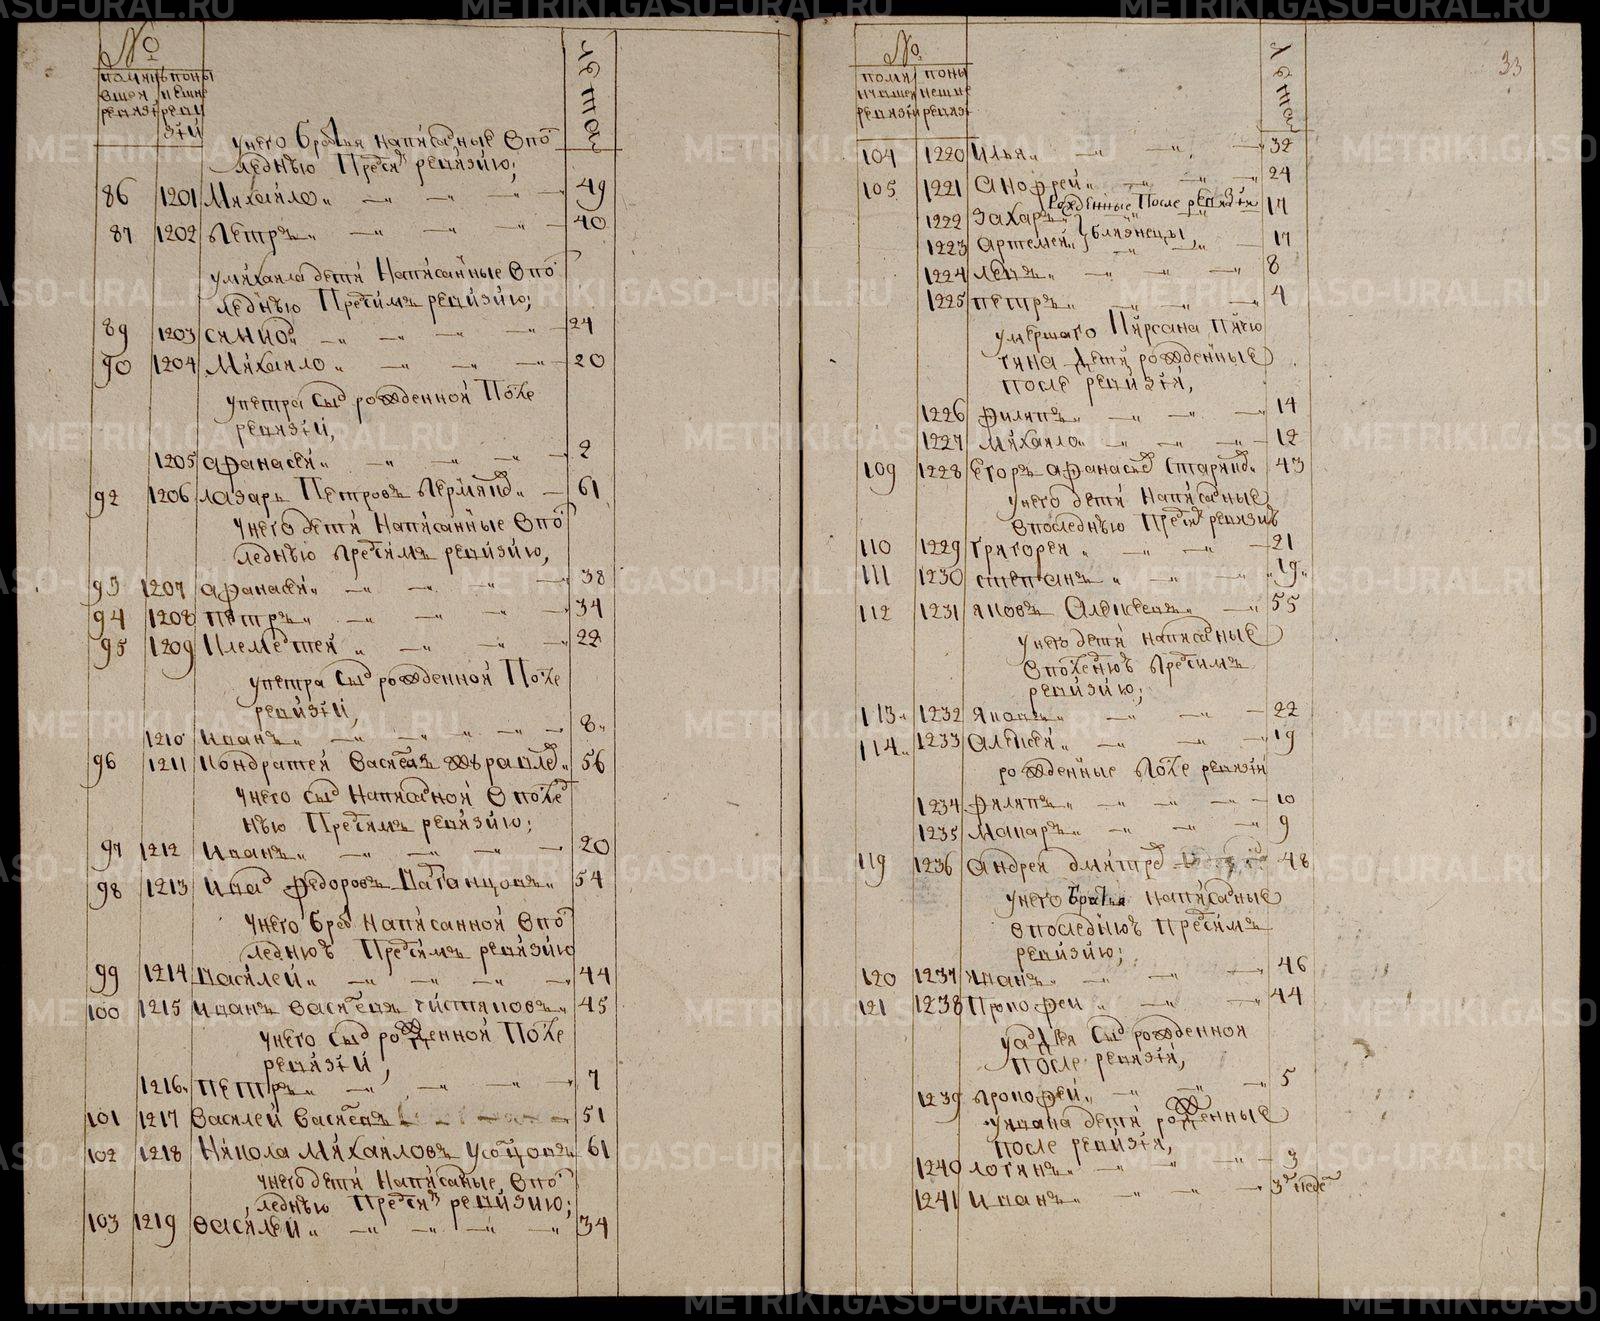 №
помянувшей ревизіи
по нынешне ревизіи
лѣта
у него братья написаные впо
леднѣю пред симъ ревизію;
86 1201 Михаило 49
87 1202 Петръ 40
у михаила дети написанные впо
леднѣю пред симъ ревизію;
89 1203 24
90 1204 Михаило 20
у петра сынъ рожденной после
ревизіи,
1205 афанасей 2
92 1206 лазарь Петровъ 61
у него дети написанные впо
леднѣю пред симъ ревизію,
93 1207 афанасей 38
94 1208 петръ 34
95 1209 22
у петра сынъ рожденной после
ревизіи,
1210 иванъ 8
96 1211 Кондратей Васильевъ 56
у него сынъ написаной впосле
нѣю пред симъ ревизію;
97 1212 иванъ 20
98 1213 иванъ федоровъ 54
у него братъ написанной впо
леднюю пред симъ ревизію
99 1214 василей 44
100 1215 иванъ Васильевъ чистяковъ 45
у него сынъ рожденной после
ревизіи,
1216 петръ 7
101 1217 василей васильевъ 51
102 1218 Никола Михаиловъ 61
у него дети написаные впо
леднѣю пред симъ ревизію;
103 1219 василей 34
33
№
помянувшей ревизіи
по нынешне ревизіи
лѣта
104 1220 илья 32
105 1221 анофрей 24
рожденные после ревизіи
1222 захаръ 17
близнецы
1223 артемей 17
1224 левъ 8
1225 петръ 4
умершаго Кирсана
дети рожденные
после ревизіи,
1226 филипъ 14
1227 Михаило 12
109 1228 егоръ афанасьевъ 43
у него дети написаные
впоследнѣю пред симъ ревизію
110 1229 григорей 21
111 1230 степанъ 19
112 1231 яковъ Алексеевъ 55
у него дети написаные
впоследнюю пред симъ
ревизію;
113 1232 яковъ 22
114 1233 Алексей 19
рожденные после ревизіи
1234 филипъ 10
1235 макаръ 9
119 1236 андрей дмитрев 48
у него братья написаные
впоследнюю пред симъ
ревизію;
120 1237 иванъ 46
121 1238 Прокофей 44
у андрея сынъ рожденной
после ревизіи,
1239 прокофей 5
у ивана дети рожденные
после ревизіи,
1240 логинъ 3
1241 иванъ 3 неде
METRIKI.GASO-URAL.RU